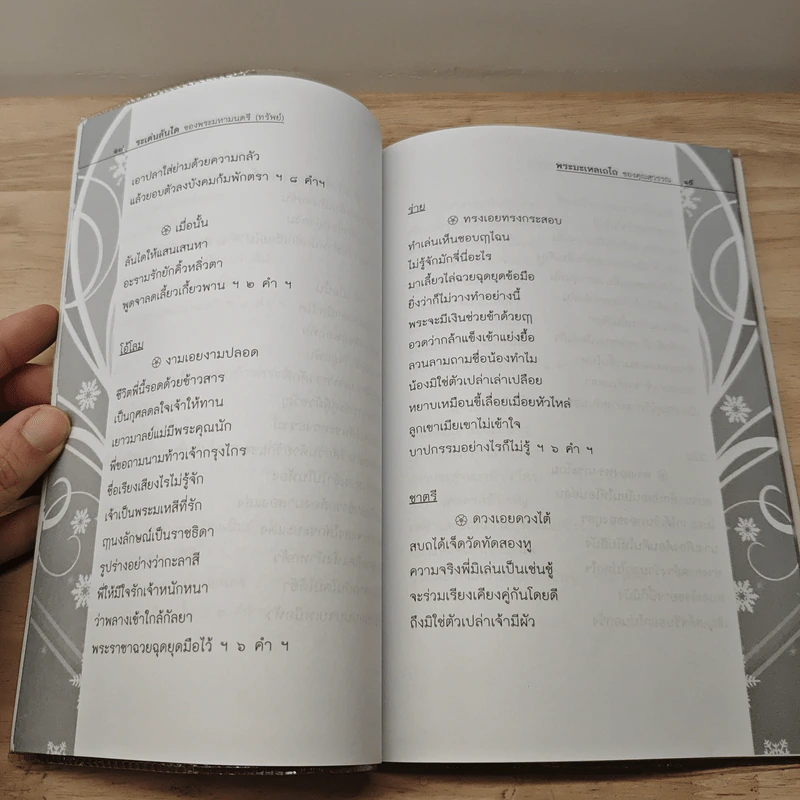 ๑๔ ระเด่นลันได ของพระมหามนตรี (ทรัพย์)
เอาปลาใส่ย่ามด้วยความกลัว
แล้วยอบตัวลงบังคมก้มพักตรา ฯ ๘ คำฯ
เมื่อนั้น
ลันไดให้แสนเสนหา
อะรามรักยักคิ้วหลิ่วตา
พูดจาลดเลี้ยวเกี้ยวพาน ฯ ๒ คำ ฯ
โอ้โลม
งามเอยงามปลอด
ชีวิตพี่นี้รอดด้วยข้าวสาร
เป็นกุศลดลใจเจ้าให้ทาน
เยาวมาลย์แม่มีพระคุณนัก
พี่ขอถามนามท้าวเจ้ากรุงไกร
ชื่อเรียงเสียงไรไม่รู้จัก
เจ้าเป็นพระมเหสีที่รัก
ฤๅนงลักษณ์เป็นราชธิดา
รูปร่างอย่างว่ากะลาสี
พี่ให้มีใจรักเจ้าหนักหนา
ว่าพลางเข้าใกล้กัลยา
พระราชาฉวยฉุดยุดมือไว้ ฯ ๖ คำ ฯ
พระมะเหลเถไถ ของคุณสุวรรณ ๑๕
ร่าย
ทรงเอยทรงกระสอบ
ทำเล่นเห็นชอบฤๅไฉน
ไม่รู้จักมักจี่นี่อะไร
มาเลี้ยวไล่ฉวยฉุดยุดข้อมือ
ยิ่งว่าก็ไม่วางทำอย่างนี้
พระจะมีเงินช่วยข้าด้วยฤๅ
อวดว่ากล้าแข็งเข้าแย่งยื้อ
ลวนลามถามชื่อน้องทำไม
น้องมิใช่ตัวเปล่าเล่าเปลือย
หยาบเหมือนขี้เลื่อยเมื่อยหัวไหล่
ลูกเขาเมียเขาไม่เข้าใจ
บาปกรรมอย่างไรก็ไม่รู้ ฯ ๖ คำ ฯ
ชาตรี
ดวงเอยดวงไต้
สบถได้เจ็ดวัดทัดสองหู
ความจริงพี่มิเล่นเป็นเช่นชู้
จะร่วมเรียงเคียงคู่กันโดยดี
ถึงมิใช่ตัวเปล่าเจ้ามีผัว